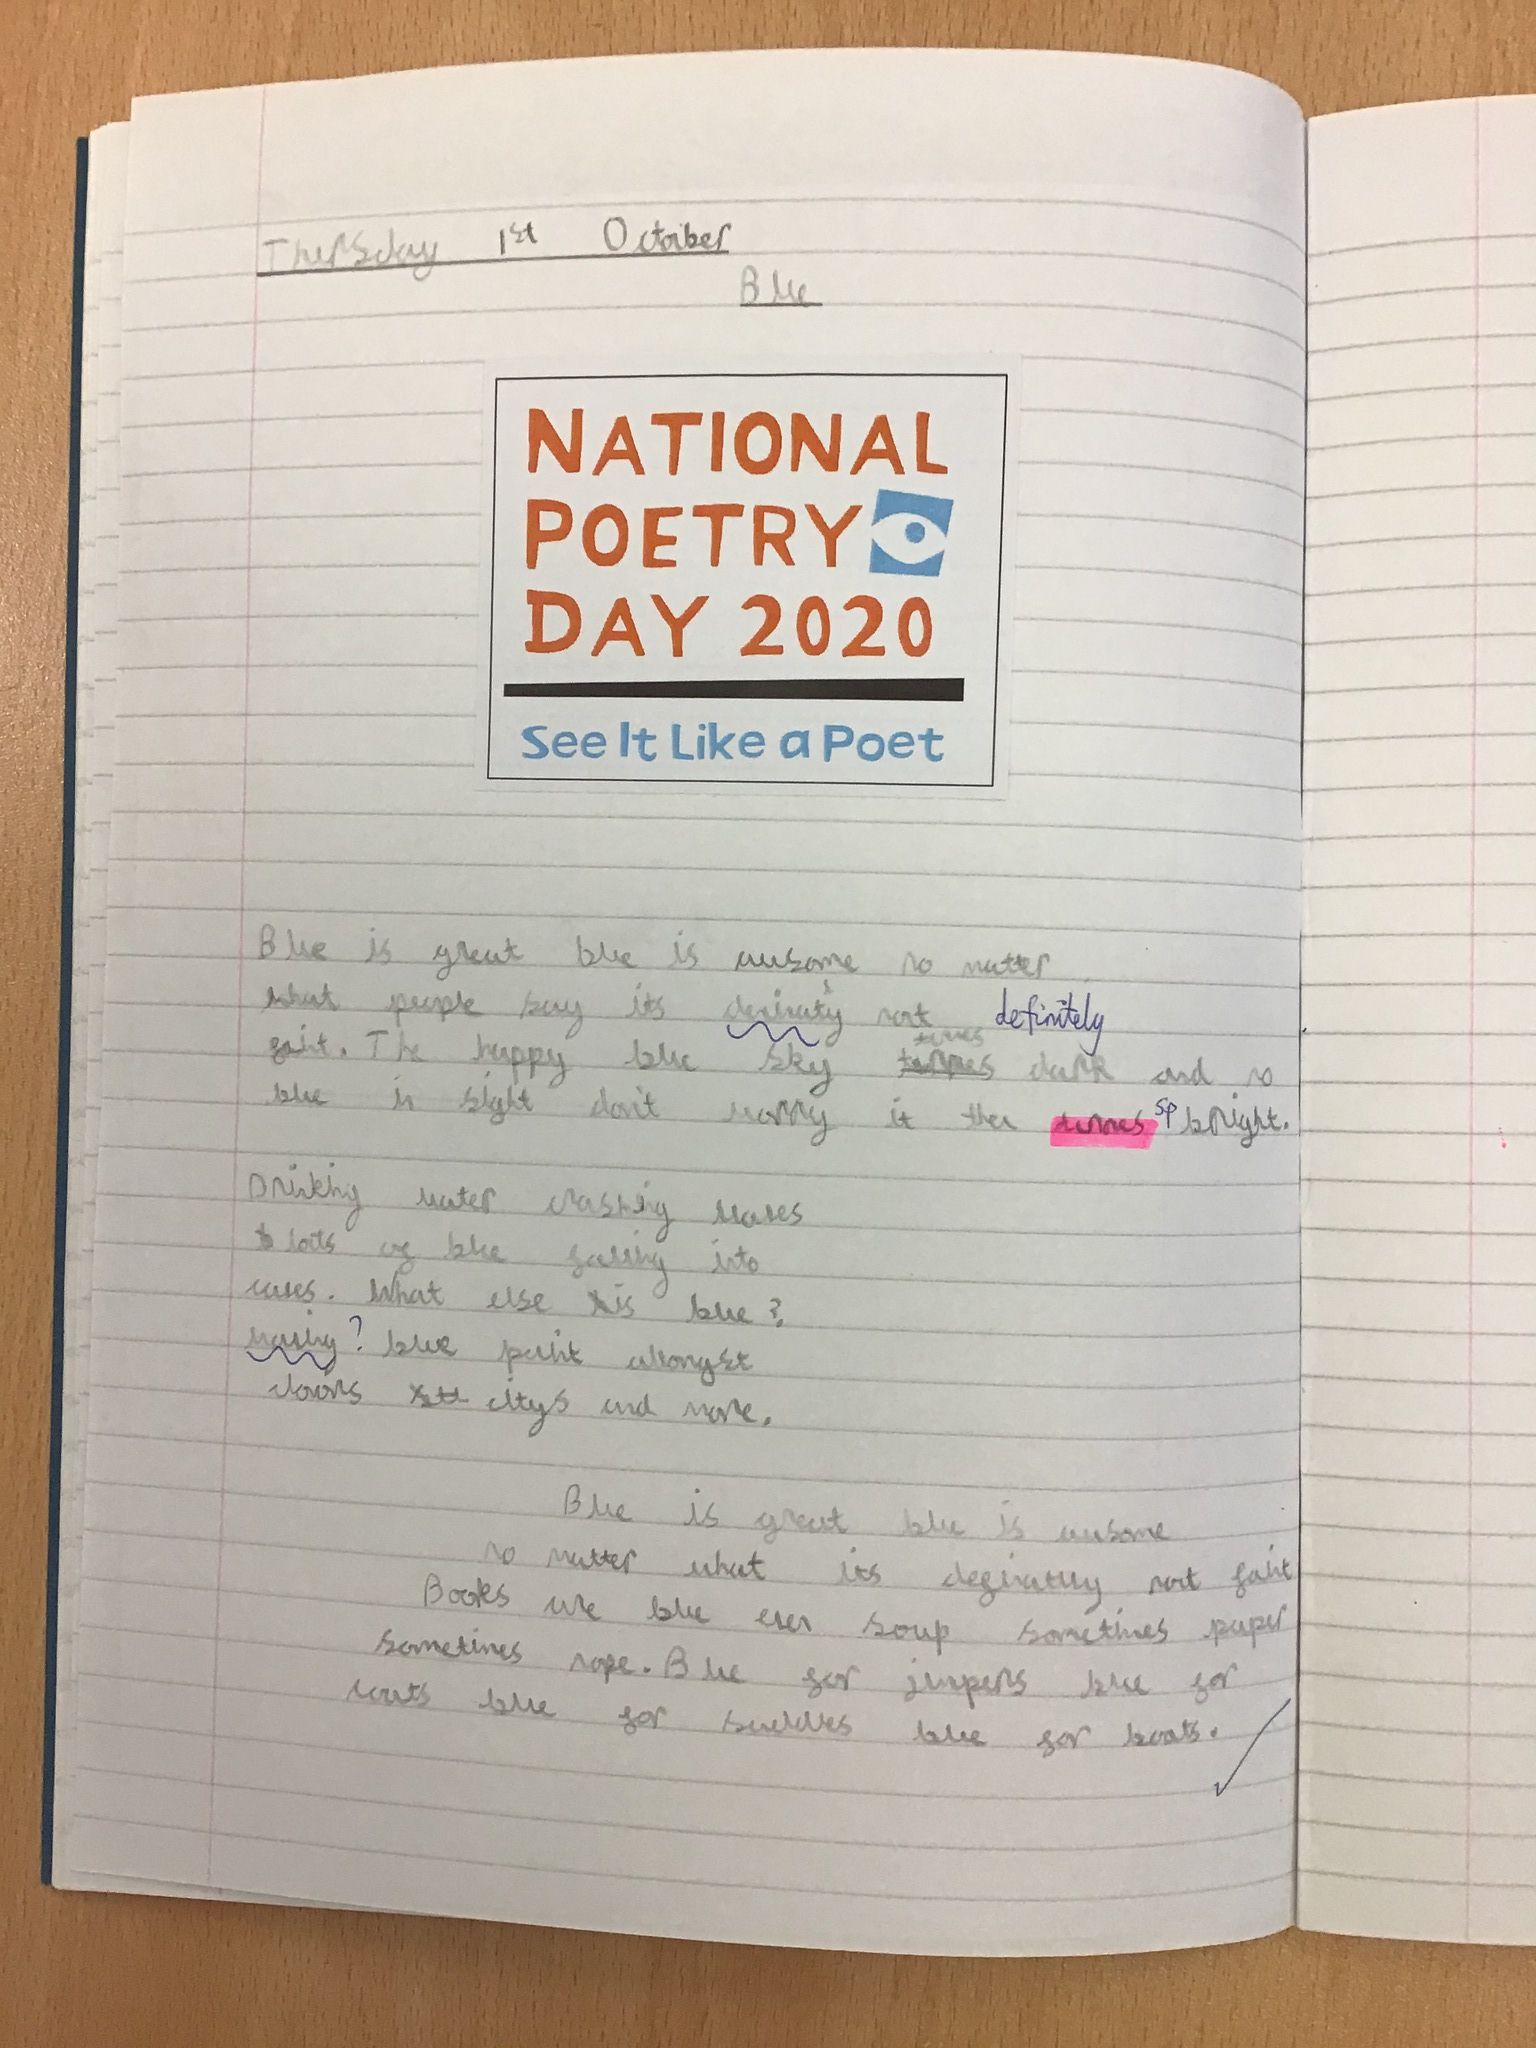 Thersday 1st October
Blue
NATIONAL
POETRY
DAY 2020
See It Like a Poet
Blue is great blue is awsome no matter
what people say its not definitely
faint. The happy blue sky turnes dark and no
blue in sight don't worry it then turnes sp bright.
Drinking water crashing waves
lots of blue falling into
caves. What else is blue?
? blue paint alongst
doors citys and more.
Blue is great blue is awsome
no matter what its definatly not faint
Books are blue even soup sometimes paper
sometimes rope. Blue for jumpers blue for
coats blue for blue for boats.